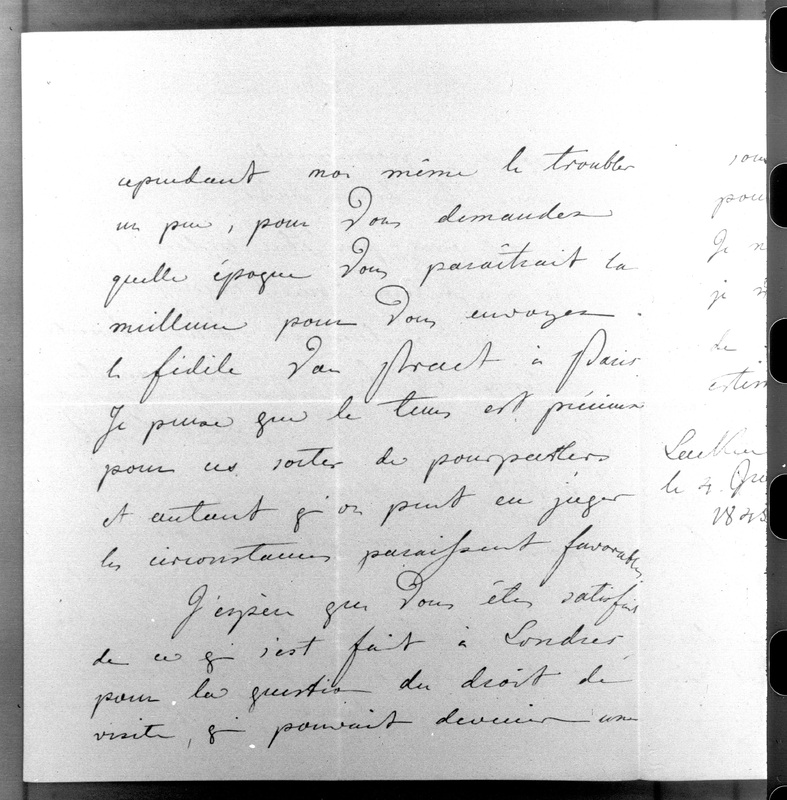 cependant moi même le troubler
un peu, pour Vous demander
quelle époque Vous paraîtrait la
meilleure pour Vous envoyer
le fidèle Van Praet à Paris
Je pense que le tems est précieux
pour ces sortes de pourparlers
et autant qu'on peut en juger
les circonstances paraissent favorables
J'espère que Vous êtes satisfait
de ce qui s'est fait à Londres,
pour la question du droit de
visite, qui pouvait devenir une
pour
Je n
je
de
estim
Laeken
le 4